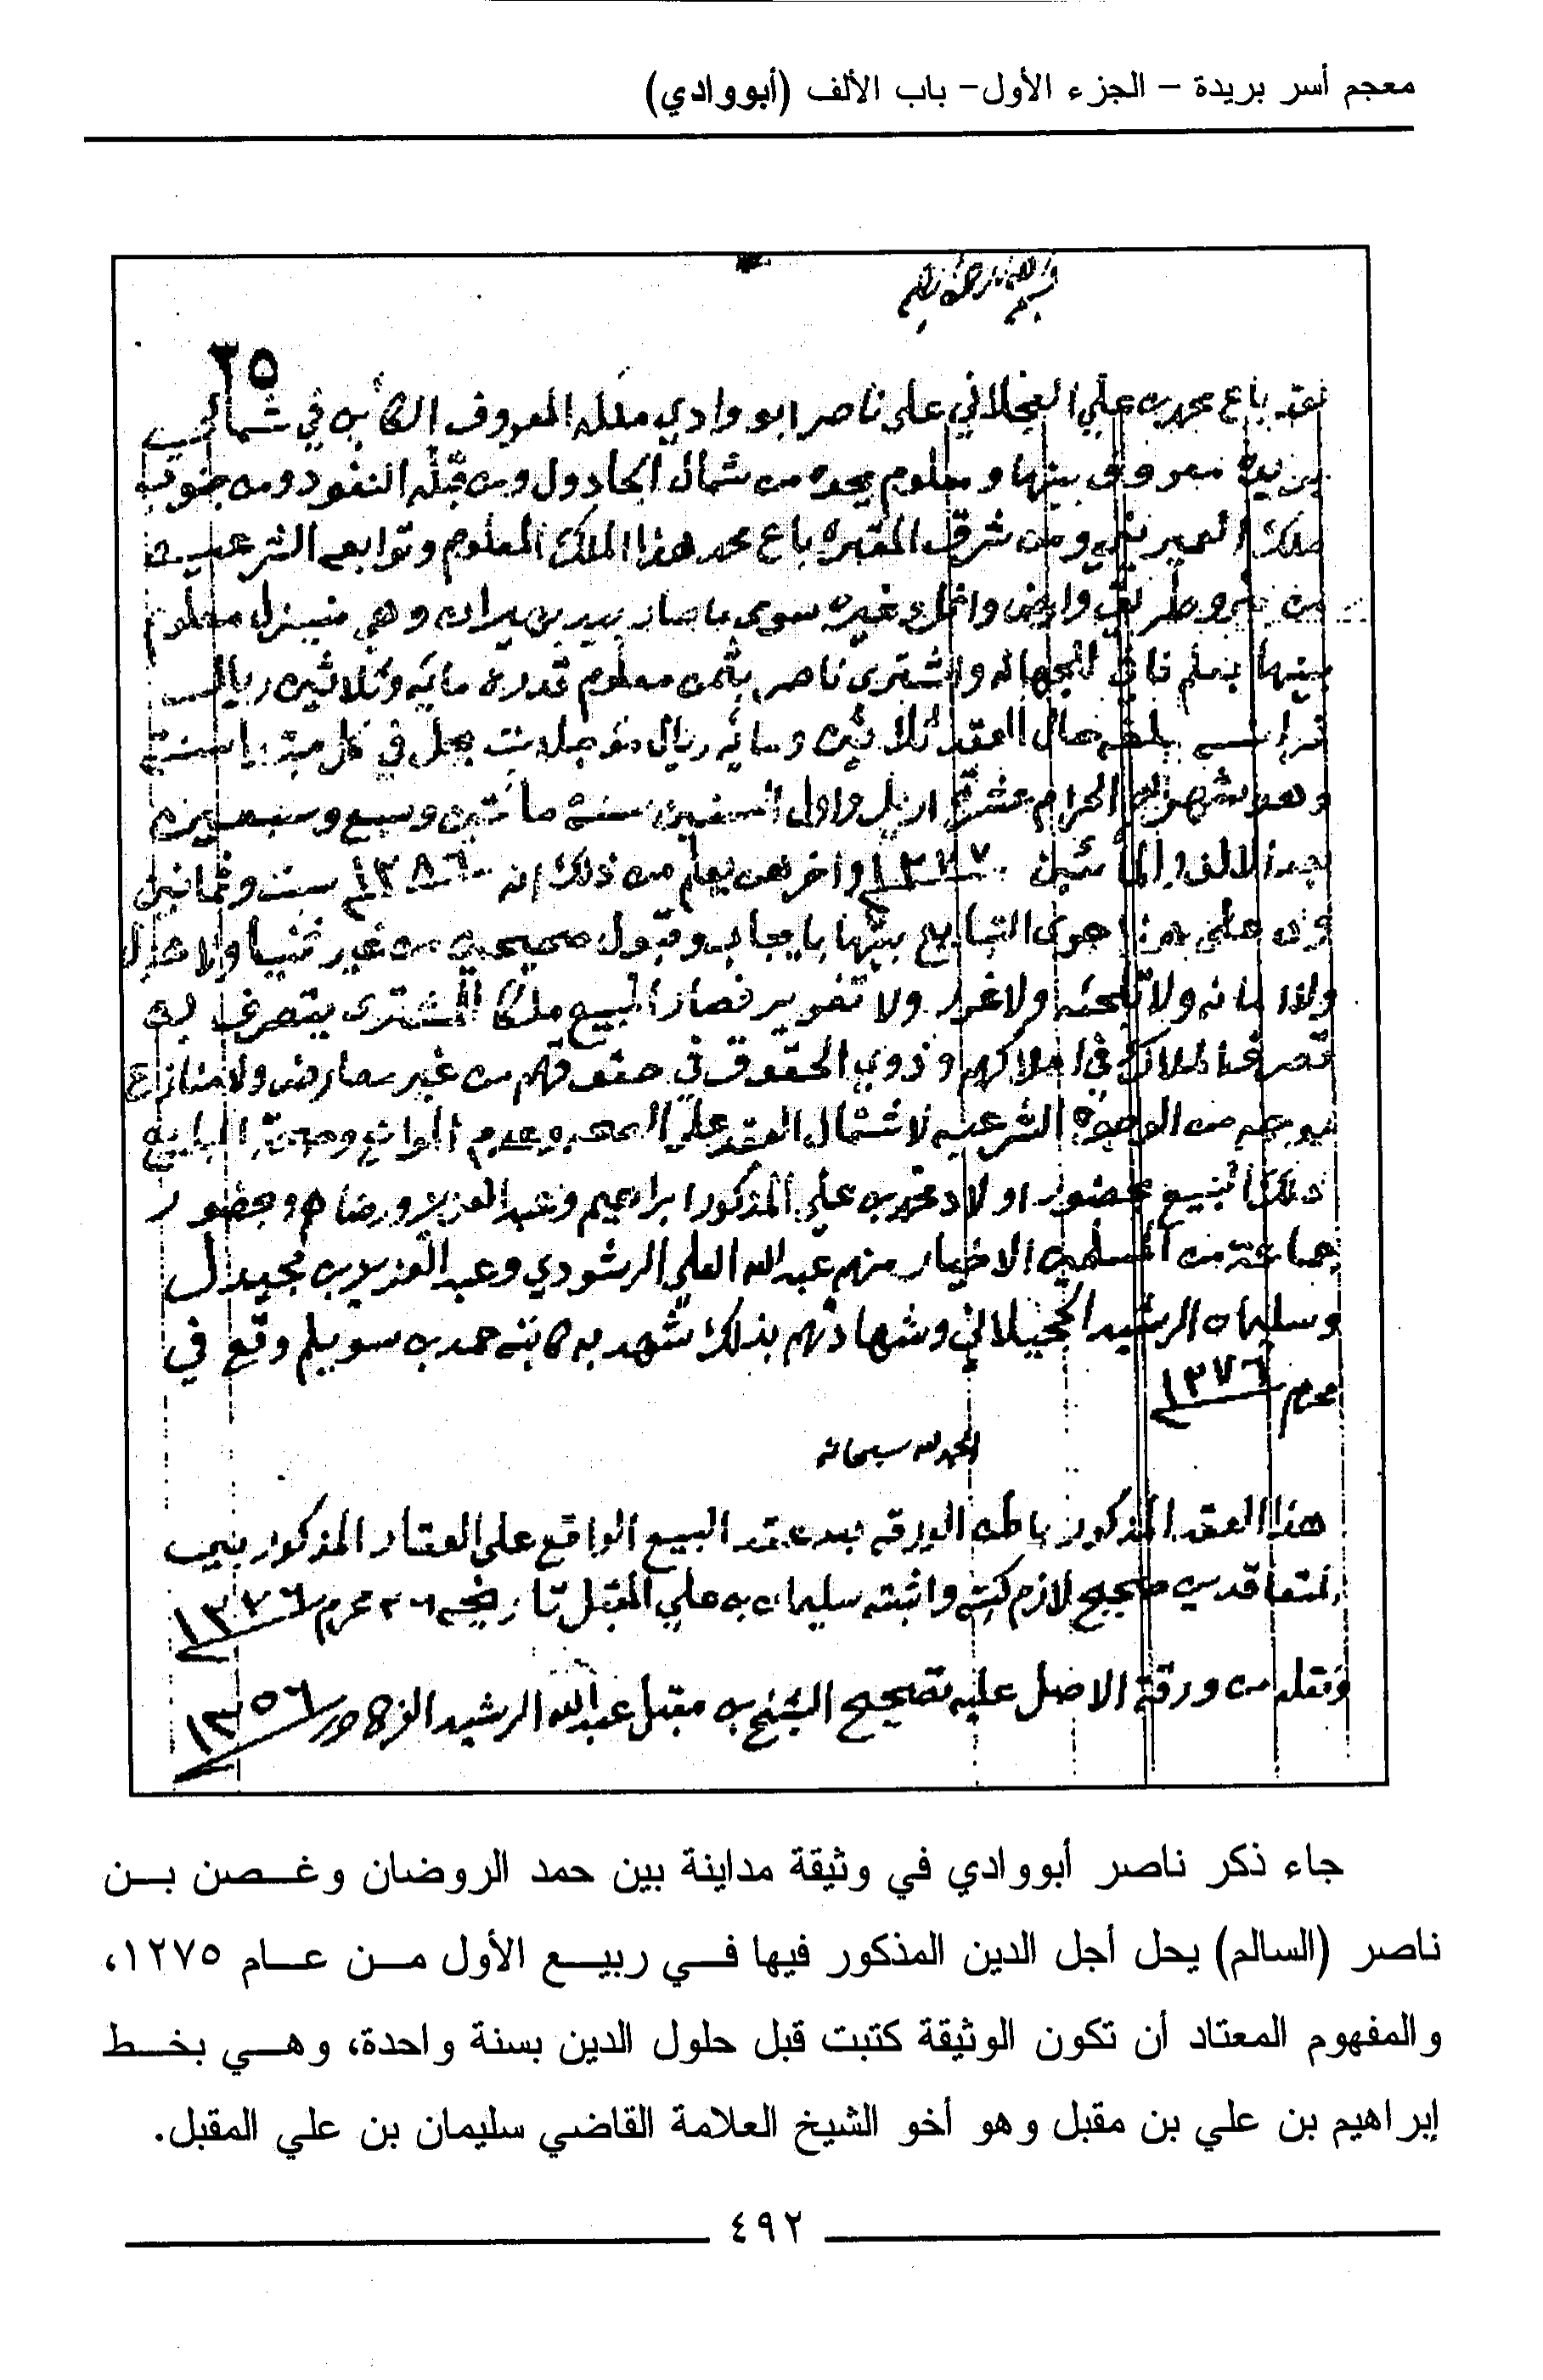 معجم أسر بريدة – الجزء الأول – باب الألف (أبووادي)
٢٥
باع محمد بن علي على ناصر ابو وادي ملكه المعروف الكائن في شمالي
بريدة معروف بينهما ومعلوم يحده من شمال ومن قبله النفود ومن جنوب
ملك ومن شرق المقبره باع محمد هذا الملك المعلوم وتوابعه الشرعيه
من وطريق وارض واثل وغيره سوى ما صار بيد بن وهي معلوم
بينهما بعلم نافي الجهاله واشترى ناصر بثمن معلوم قدره مايه وثلاثين ريال
بلغه حال العقد ثلاثين ومائه ريال مؤجلات يحل في كل
وهو شهر الحرام عشرة اريل واول السنين سنة مأتين وسبع وسبعين
بعد الالف والمأتين ١٢٧٧ واخرهن يعلم من ذلك انه ١٢٨٦ ست وثمانين
جرى التبايع بينهما بايجاب وقبول صحيحين من غير ثنيا ولا هزل
ولا تلجئه ولا غرر ولا تغرير فصار المبيع ملكا للمشتري يتصرف به
تصرف الملاك في املاكهم وذوي الحقوق في حقوقهم من غير معارض ولا منازع
بوجه من الوجوه الشرعيه لاشتمال العقد على الصحه وعدم الموانع
ذلك البيع بحضور اولاد محمد بن علي المذكور ابراهيم وعبد العزيز ورضاهم وبحضور
جماعة من المسلمين الاخيار منهم عبد الله العلي الرشودي وعبد العزيز بن
وسليمان الرشيد الحجيلاني وشهادتهم بذلك شهد به كاتبه حمد بن سويلم وقع في
محرم ١٢٧٦
الحمد لله سبحانه
هذا العقد المذكور باطن الورقه بعد عقد البيع الواقع على العقار المذكور بين
المتعاقدين صحيح لازم كتبه واثبته سليمان بن علي المقبل تاريخه ٢٦ محرم ١٢٧٦
ونقله من ورقة الاصل عليه تصحيح الشيخ بن مقبل عبد الله الرشيد الفرج ١٣٥٦
جاء ذكر ناصر أبووادي في وثيقة مداينة بين حمد الروضان وغصن بن
ناصر (السالم) يحل أجل الدين المذكور فيها في ربيع الأول من عام ١٢٧٥،
والمفهوم المعتاد أن تكون الوثيقة كتبت قبل حلول الدين بسنة واحدة، وهي بخط
إبراهيم بن علي بن مقبل وهو أخو الشيخ العلامة القاضي سليمان بن علي المقبل.
٤٩٢